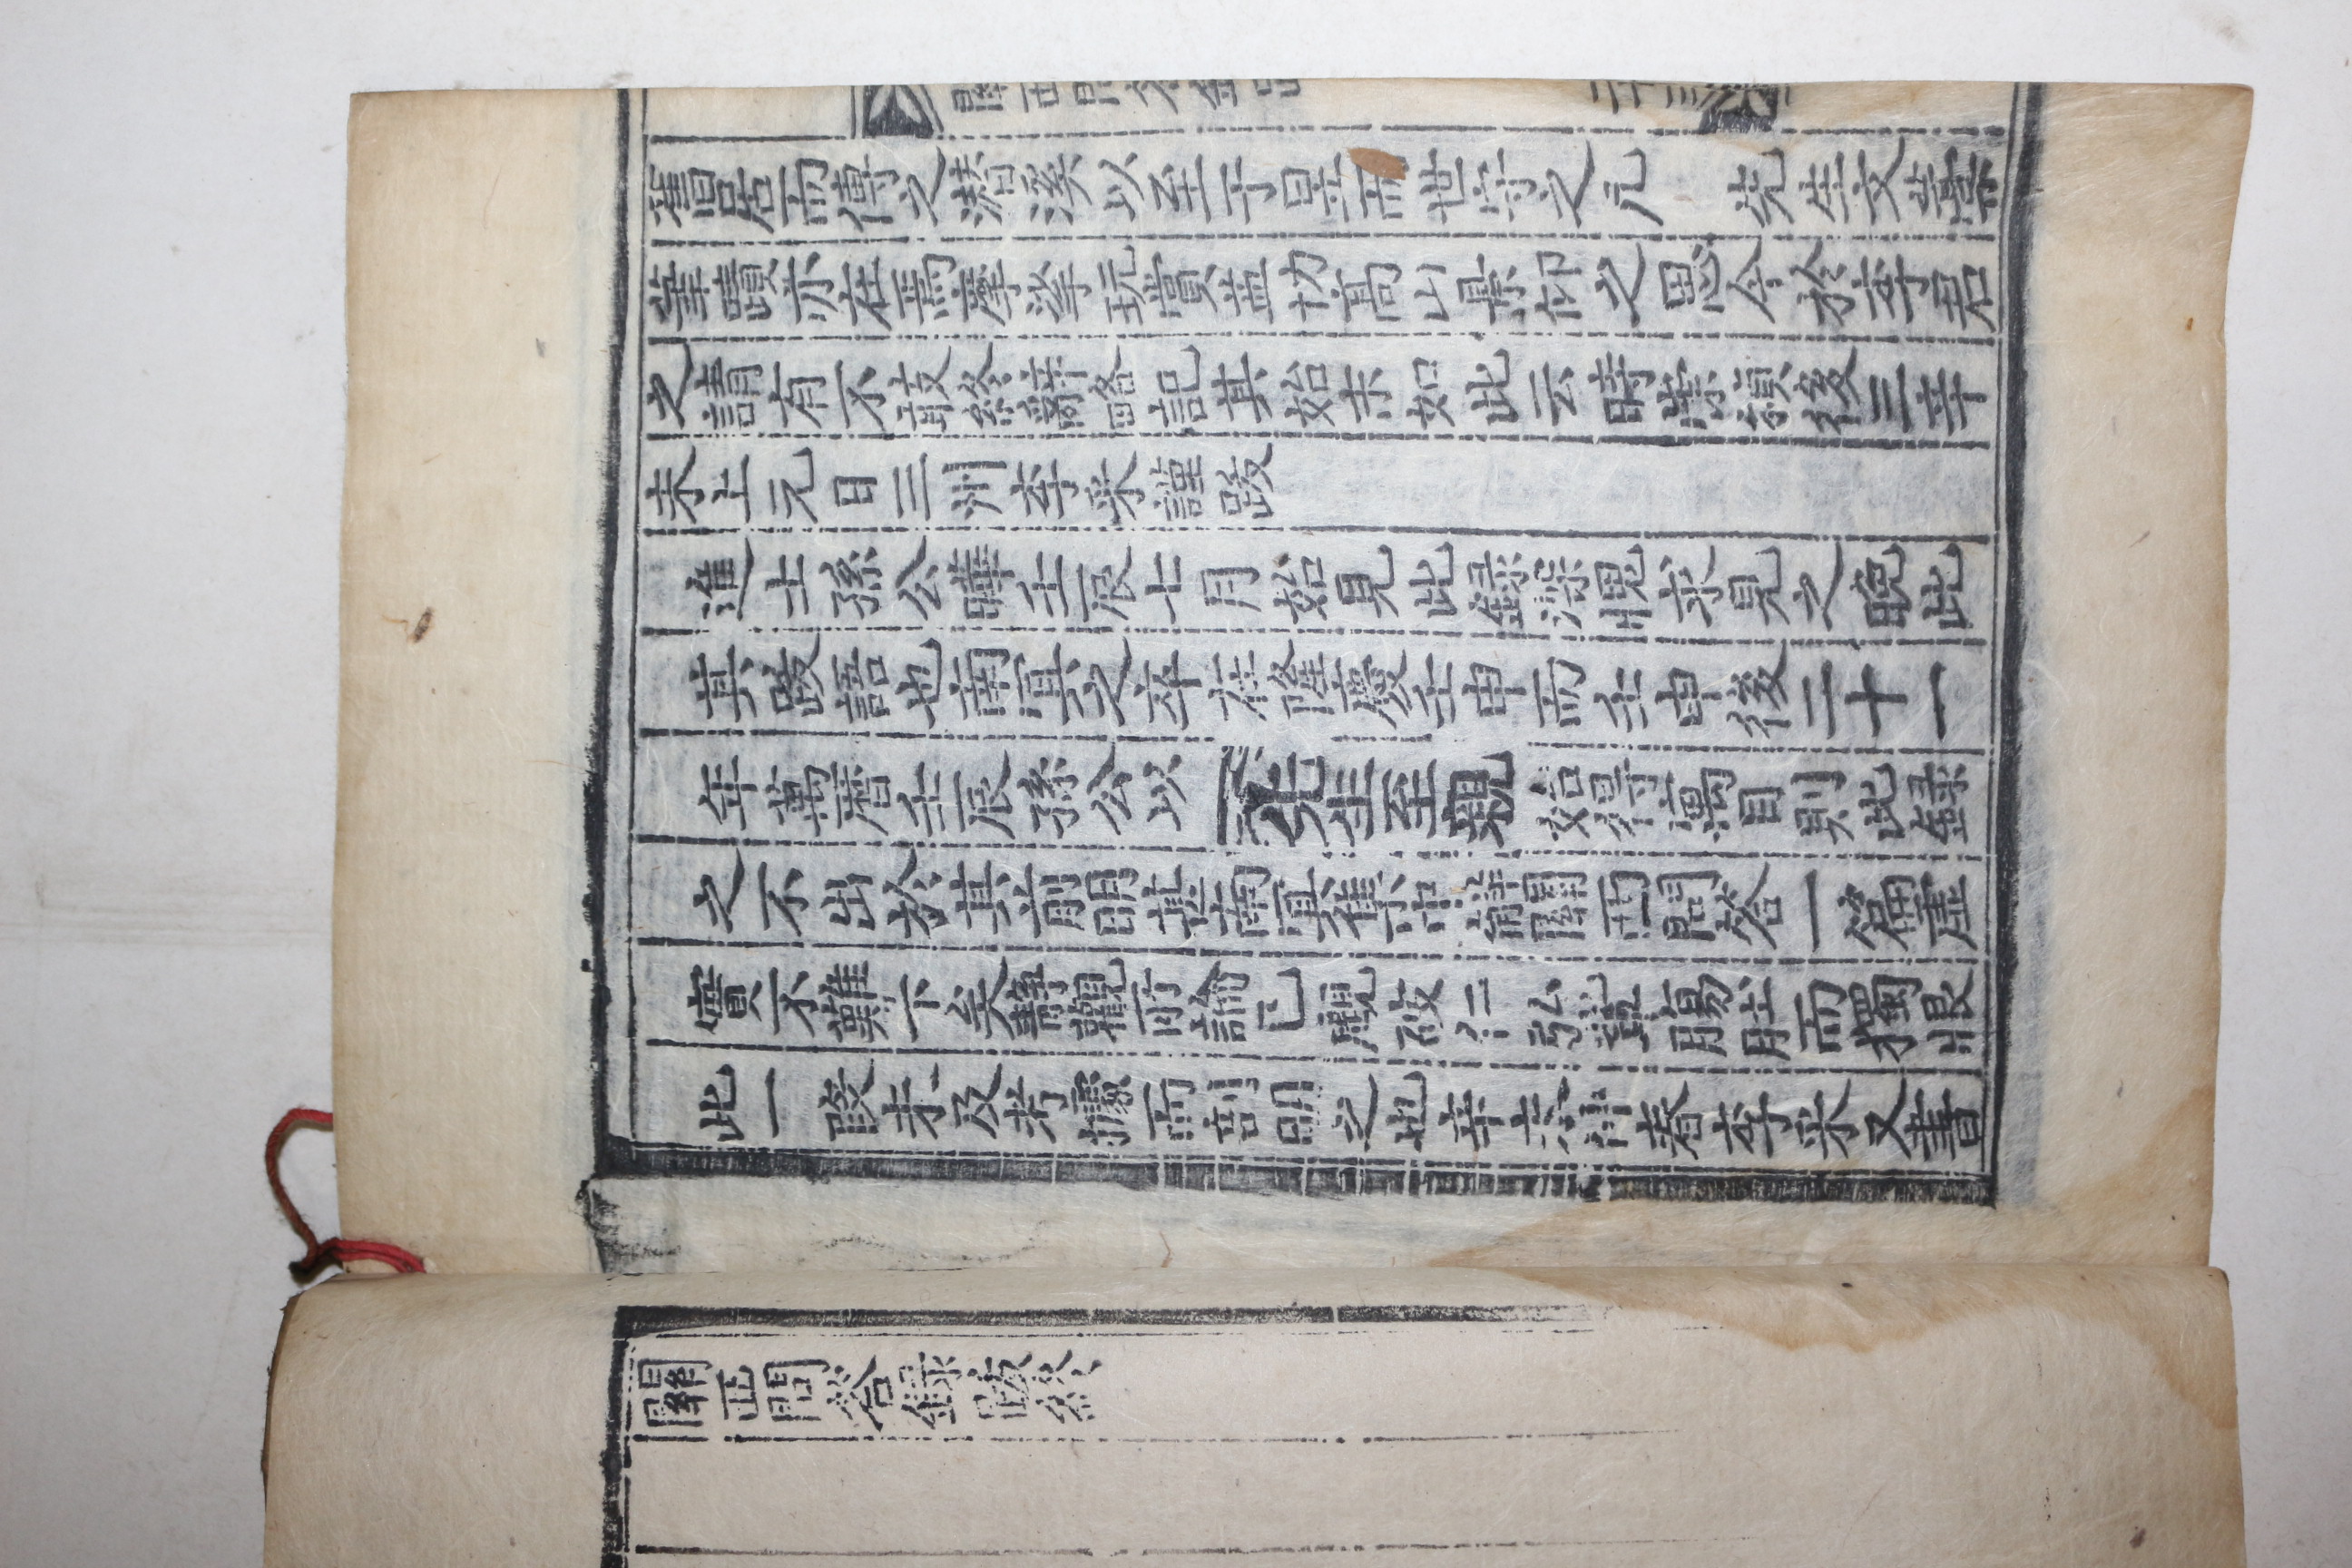 舊居而傳之潛溪以至于昱而世守之凡　先生文藁
筆蹟亦在焉摩挲玩賞益切高山景仰之思今於李君
之請有不敢終辭略記其始末如此云時崇禎後三辛
未上元日三州李采謹跋
進士孫公曄壬辰七月始見此録深愧求見之晩此
其跋語也南冥之卒在隆慶壬申而壬申後二十一
年萬曆壬辰孫公以先生至親始得寓目則此録
之不出於其前明甚南冥集中觧關西問答一篇虛
實不難卞矣静觀所論已覷破仁弘輩膓肚而獨恨
此一段未及考據而剖明之也辛未季春李采又書
關西問答録跋
關西問答録跋終